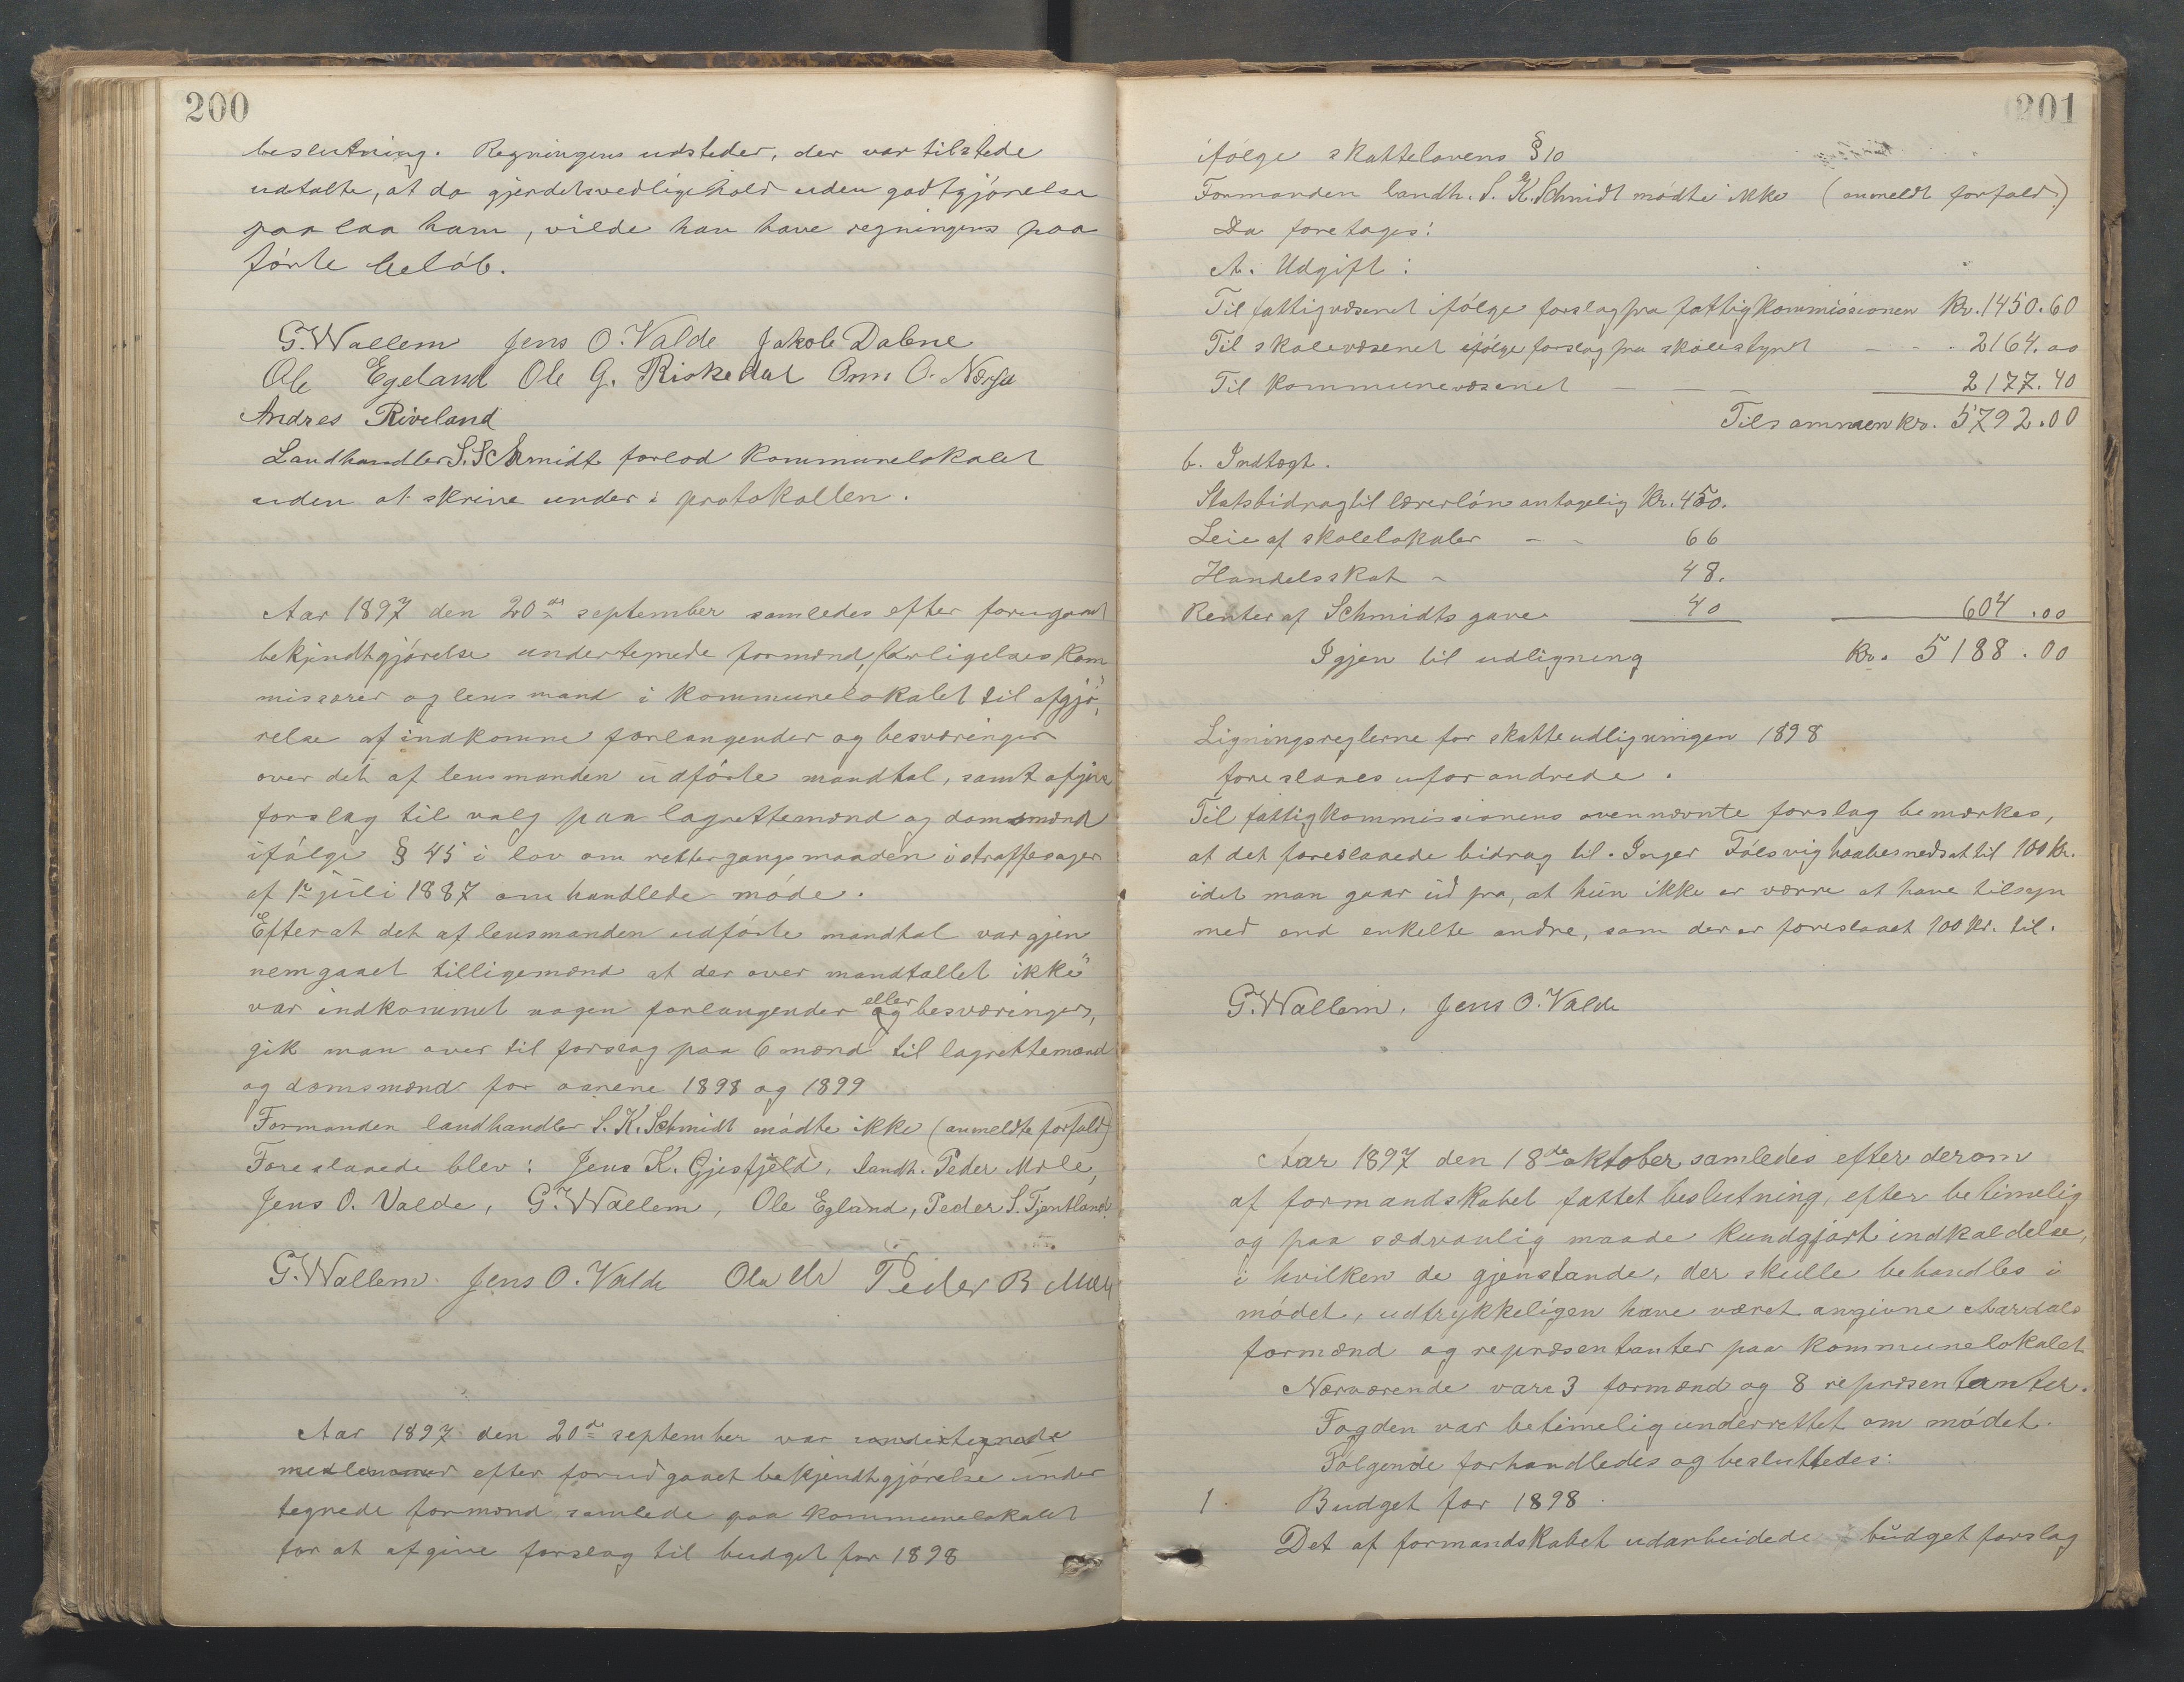 200
beslutning. Regningens udsteder, der var tilstede
udtalte, at da gjerdetsvedligehold uden godtgjørelse
paa laa ham, vilde han have regningens paa
førte beløb.
G. Wallem Jens O. Valde Jakob Dalene
Ole Egeland Ole G. Riskedal
Andres Riveland
Landhandler S. Schmidt forlod kommunelokalet
uden at skrive under i protokollen.
Aar 1897 den 20de september samledes efter forugaaet
bekjendtgjørelse undertegnede formænd, forligelseskom
missærer og lensmand i kommunelokalet til afgjø
relse af indkomne forlangender og besværinger
over det af lensmanden udførte mandtal, samt afgive
forslag til valg paa lagrettemænd og domsmænd
ifølge § 45 i lov om rettergangsmaaden i straffesager
af 1e juli 1887 omhandlede møde.
Efter at det af lensmanden udførte mandtal var gjen
nemgaaet tilligemænd at der over mandtallet ikke
var indkommet nogen forlangender og eller besværinger,
gik man over til forslag paa 6 mænd til lagrettemænd
og domsmænd for aarene 1898 og 1899
Formanden landhandler S. K. Schmidt mødte ikke (anmeldte forfald)
Foreslaaede blev: Jens K. Gjesfjeld, landh. Peder Mæle,
Jens O. Valde, G. Wallem, Ole Egland, Peder S. Tjentland.
G. Wallem. Jens O. Valde Peder B Mæle
Aar 1897 den 20de september var undertegnede
medlemmer efter forudgaaet bekjendtgjørelse under
tegnede formænd samlede paa kommunelokalet
for at afgive forslag til budget for 1898
201
ifølge skattelovens § 10
Formanden landh. S. K. Schmidt mødte ikke (anmeldt forfald.)
Da foretages:
A. Udgift:
Til fattigvæsenet ifølge forslag fra fattigkommissionen Kr. 1450.60
Til skolevæsenet ifølge forslag fra skolestyret - - - 2164.00
Til kommunevæsenet - - 2177.40
Tilsammen kr. 5792.00
b. Indtægt.
Statsbidrag til lærerløn antagelig Kr. 450.
Leie af skolelokaler - - 66
Handelsskat - 48.
Renter af Schmidts gave 40 604.00
Igjen til udligning Kr. 5188.00
Ligningsreglerne for skatteudligningen 1898
foreslaaes uforandrede.
Til fattigkommissionens ovennævnte forslag bemærkes,
at det foreslaaede bidrag til Inger Følsvig haabes nedsat til 100 kr.
idet man gaar ud fra, at hun ikke er værre at have tilsyn
med end enkelte andre, som der er foreslaaet 100 kr. til.
G. Wallem. Jens O. Valde
Aar 1897 den 18de oktober samledes efter derom
af formandskabet fattet beslutning, efter betimelig
og paa sædvanlig maade kundgjort indkaldelse,
i hvilken de gjenstande, der skulle behandles i
mødet, udtrykkeligen have været angivne Aardals
formænd og repræsentanter paa kommunelokalet
Nærværende vare 3 formænd og 8 repræsentanter.
Fogden var betimelig underrettet om mødet.
Følgende forhandledes og besluttedes:
1 Budget for 1898.
Det af formandskabet udarbeidede budgetforslag